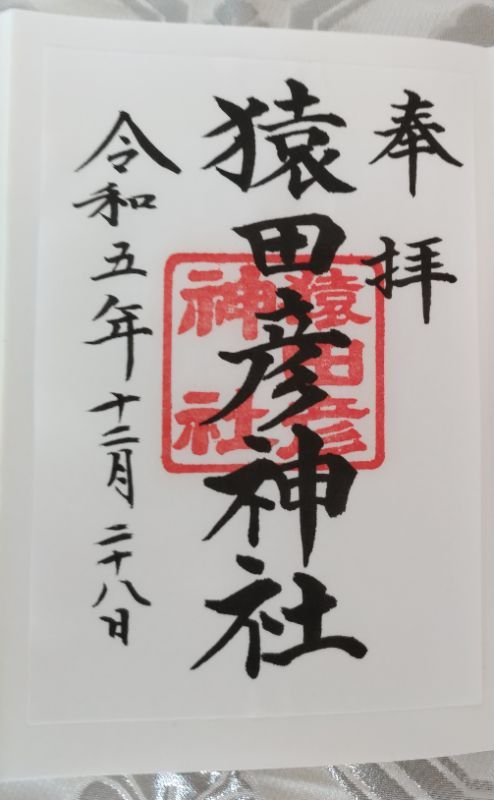 奉拝
猿田彦神社
猿田彦
神社
令和五年十二月二十八日